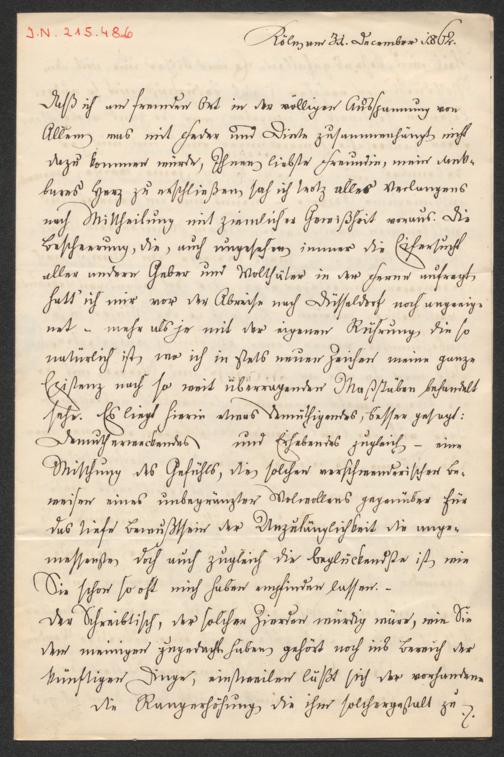 J.N. 215.486
Köln am 31. December 1862.
Daß ich am fremden Ort in der völligen Ausspannung von
Allem, was mit Feder und Dinte zusammenhängt, nicht
dazu kommen würde, Ihnen, liebste Freundin, mein dank-
bares Herz zu erschließen, sah ich trotz alles Verlangens
nach Mittheilung mit ziemlicher Gewißheit voraus. Die
Bescheerung, die, auch ungesehen immer die Eifersucht
aller andern Geber und Wolthäter in der Ferne aufregt,
hatt' ich mir vor der Abreise nach Düsseldorf noch angeeig-
net – mehr als je mit der eigenen Rührung, die so
natürlich ist, wo ich in stets neuen Zeichen meine ganze
Existenz nach so weit überragenden Maßstäben behandelt
sehe. Es liegt hierin etwas Demüthigendes, besser gesagt:
Demutherweckendes und Erhebendes zugleich, – eine
Mischung des Gefühls, die solchen verschwenderischen Be-
weisen eines unbegränzten Wolwollens gegenüber für
das tiefe Bewußtsein der Unzulänglichkeit die ange-
messenste, doch auch zugleich die beglückendste ist, wie
Sie schon so oft mich haben empfinden lassen. –
Der Schreibtisch, der solcher Zierden würdig wäre, wie Sie
dem meinigen zugedacht haben, gehört noch ins Bereich der
künftigen Dinge, einstweilen läßt sich der vorhandene
die Rangerhöhung, die ihm solchergestalt zu